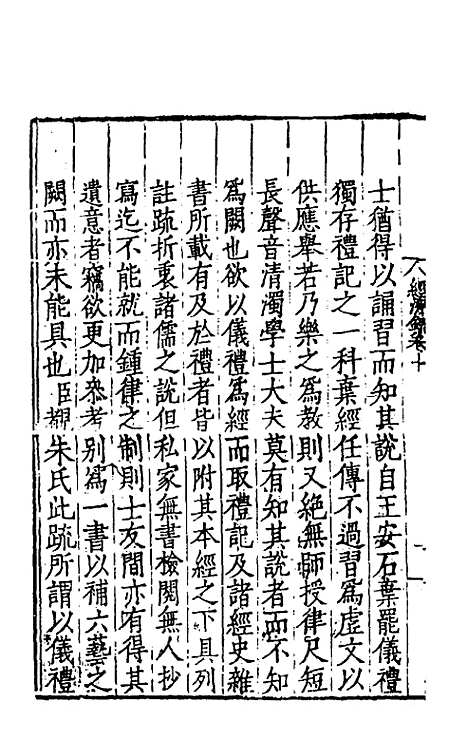 六經
卷十
士猶得以誦習而知其說自王安石棄罷儀禮
獨存禮記之一科棄經任傳不過習爲虛文以
供應舉若乃樂之爲教則又絕無師授律尺短
長聲音清濁學士大夫莫有知其說者而不知
爲闕也欲以儀禮爲經而取禮記及諸經史雜
書所載有及於禮者皆以附其本經之下具列
註疏折衷諸儒之說但私家無書檢閱無人抄
寫迄不能就而鍾律之制則士友間亦有得其
遺意者竊欲更加叅考别爲一書以補六藝之
闕而亦未能具也臣
朱氏此疏所謂以儀禮